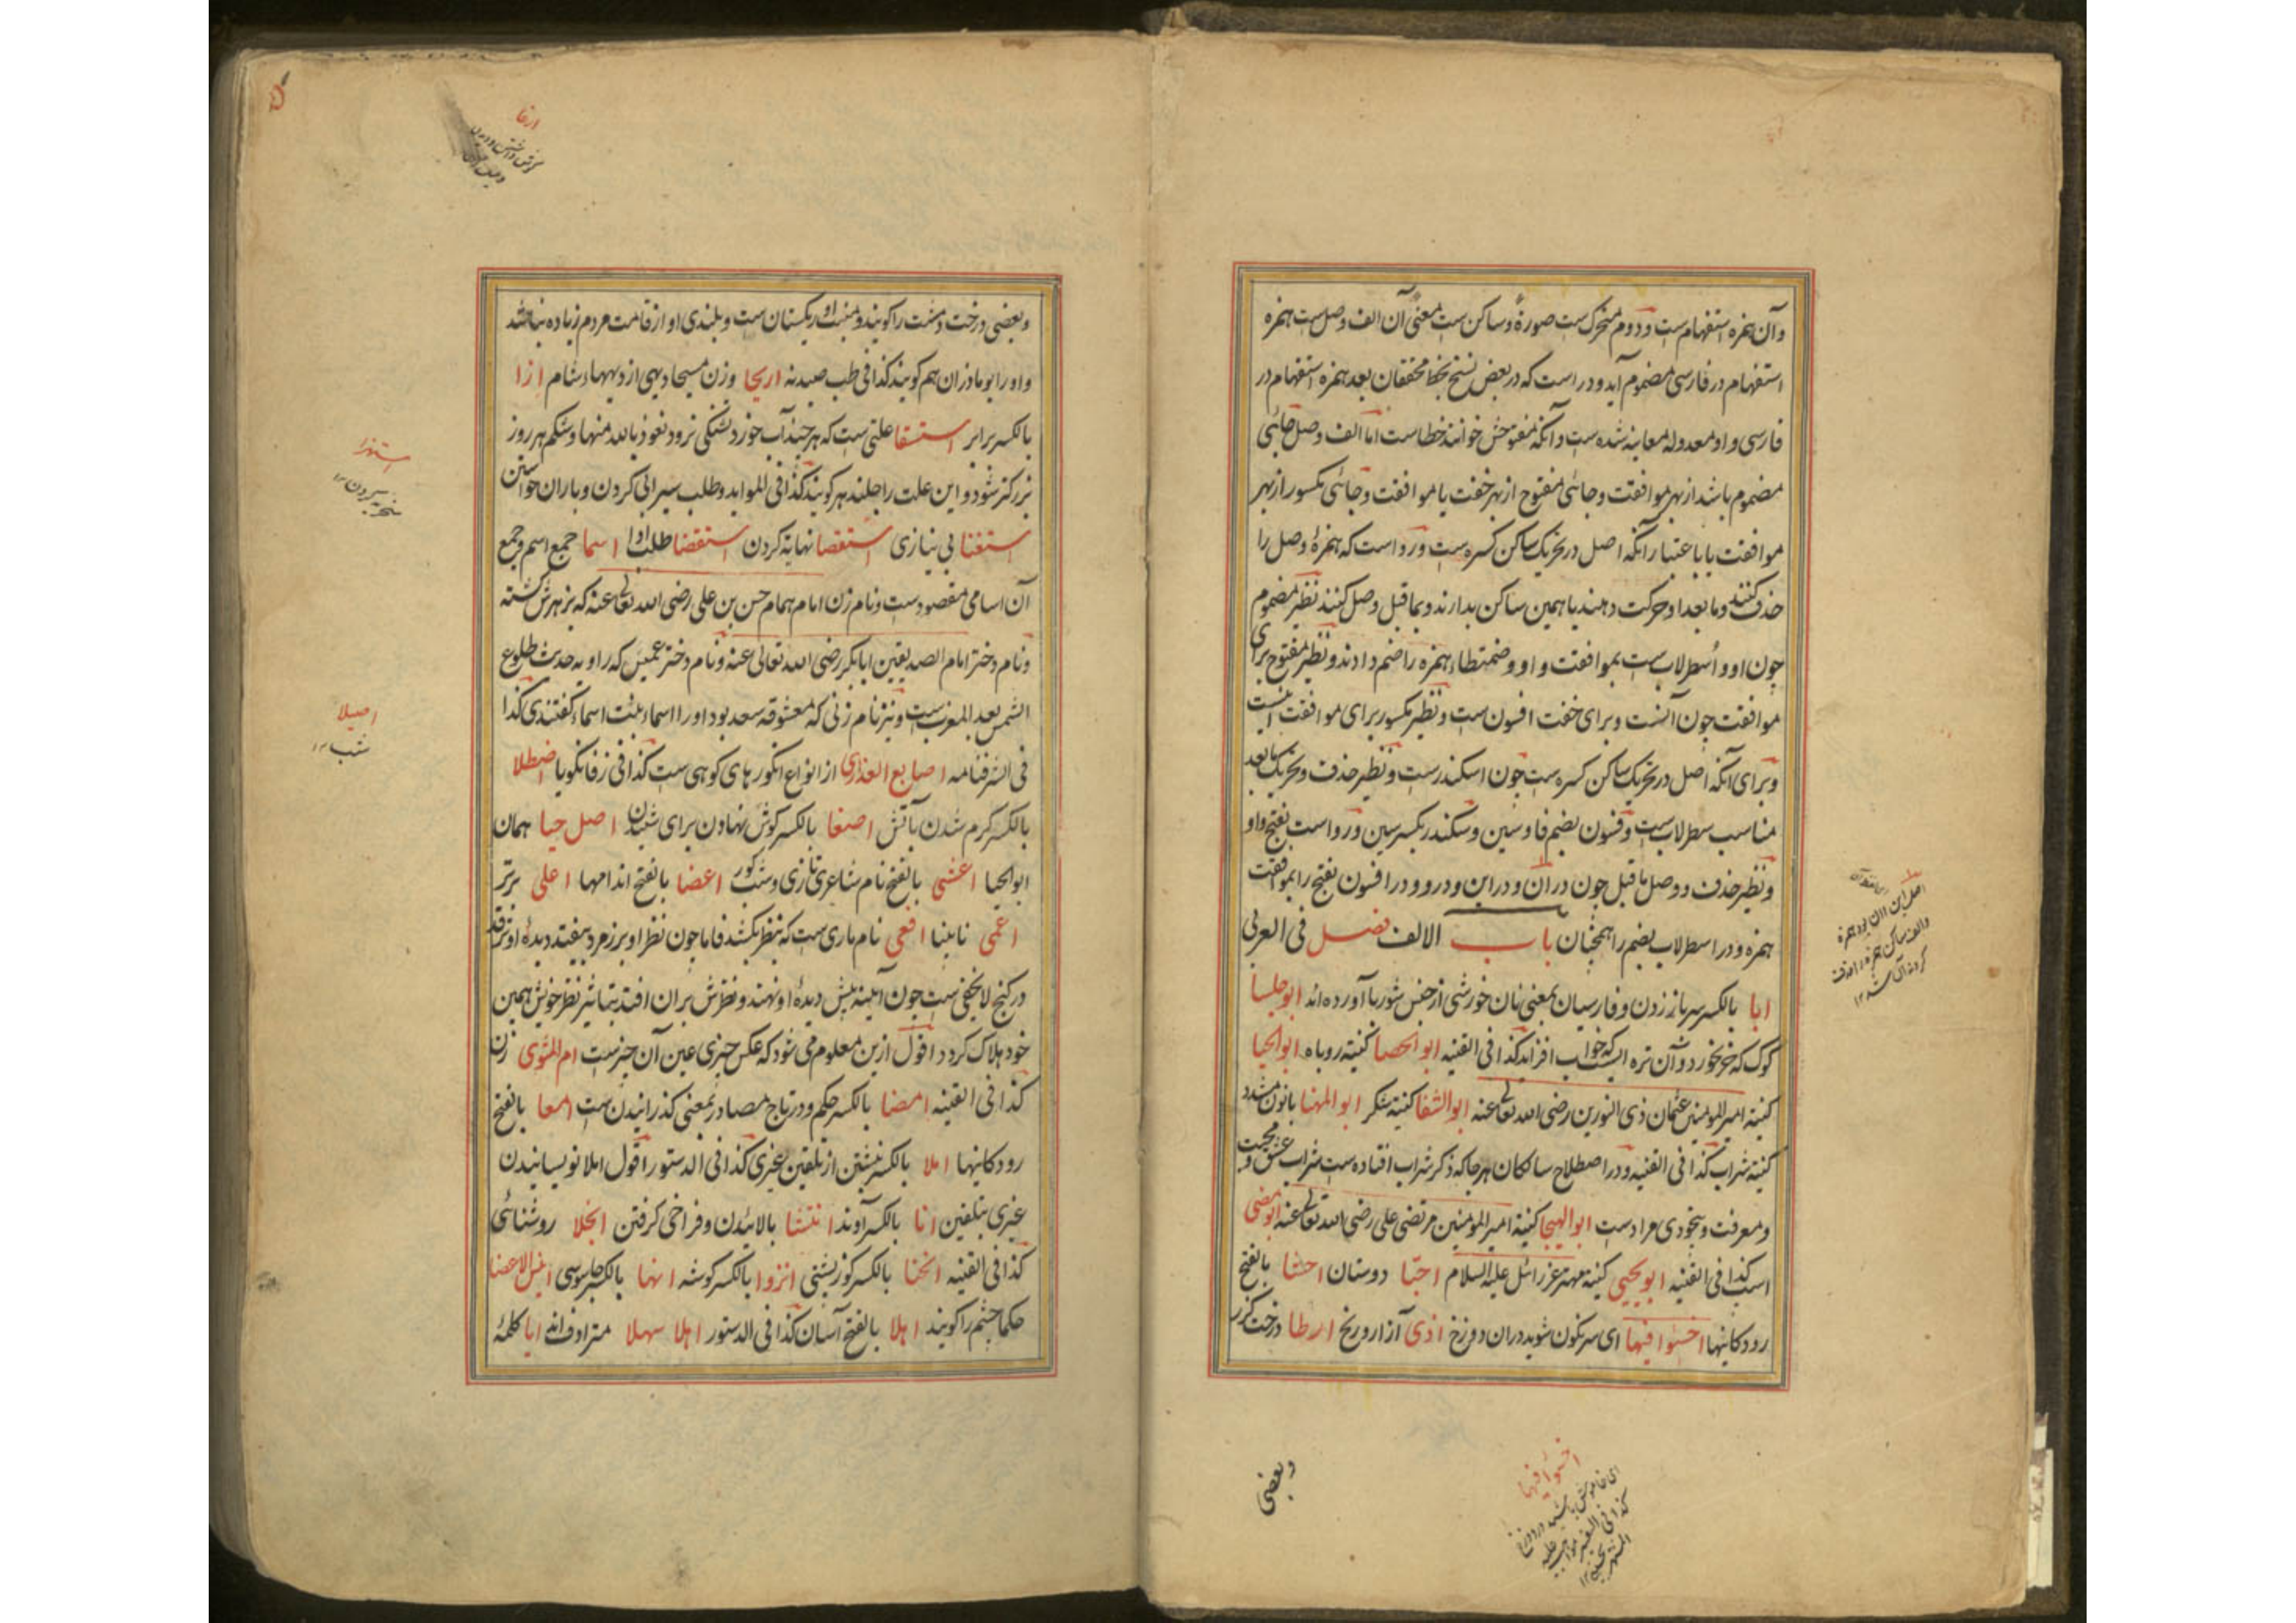 وآن همزه استفهام ست و دوم متحرک ست صورة وساکن ست معنی آن الف وصل ست همزه
استفهام در فارسی مضموم آید ودر است که در بعض نسخ بخط محققان بعد همزه استفهام در
فارسی واو معدوله معاینه شده ست وآنکه مفتوحش خوانند خطاست اما الف وصل جائی
مضموم باشد از بهر موافقت وجائی مفتوح از بهر خفت یا موافقت وجائی مکسور از بهر
موافقت یا باعتبار آنکه اصل در تحریک ساکن کسره ست ورواست که همزهٔ وصل را
حذف کنند وما بعد او حرکت دهند یا همین ساکن بدارند وبما قبل وصل کنند نظیر مضموم
چون او واُسطرلاب ست بموافقت واو وضمتطاء همزه را ضم دادند ونظیر مفتوح برای
موافقت چون آنست وبرای خفت افسون ست ونظیر مکسور برای موافقت اینست
وبرای آنکه اصل در تحریک ساکن کسره ست چون اسکندرست ونظیر حذف وتحریک مابعد
مناسب سطرلاب ست وفسون بضم فا وسین وسکندر بکسر سین ورواست بفتح واو
ونظیر حذف ووصل ماقبل چون در آن ودر این ودرو ودر افسون بفتح را بموافقت
همزه ودر اسطرلاب بضم را همچنان باب الالف فصل فی العربی
ابا بالکسر سرباز زدن وفارسیان بمعنی نان خورشی از جنس شوربا آورده اند ابوجلسا
کوک که خر بخورد وآن تره ایست که خواب افزاید کذا فی القنیه ابوالحصا کنیته روباه ابوالحیا
کنیته امیر المومنین عثمان ذی النورین رضی الله تعالی عنه ابوالشفا کنیته شکر ابوالمهنا بانون مشدد
کنیته شراب کذا فی القنیه ودر اصطلاح سالکان هرجاکه ذکر شراب افتاده ست شراب عشق ومحبت و
ومعرفت وبیخودی مرادست ابوالهیجا کنیته امیر المومنین مرتضی علی رضی الله تعالی عنه ابومضی
اسب کذا فی القنیه ابویحیی کنیته مهتر عزرائل علیه السلام احبّا دوستان احشا بالفتح
رودکانیها اخسئوا فیها ای سرنگون شوید دران دوزخ اذی آزار ورنج ارطا درخت گز
اصل این اان بود همزه
وبعضی
اخسئوا فیها
وبعضی درخت دشت را گویند ومنبت او ریگستان ست وبلندی او از قامت مردم زیاده نباشد
واو را بوماذران هم گویند کذا فی طب صیدنه اریحا وزن مسیحا دیهی از دیهاء شام ازا
بالکسر برابر استسقا علتی ست که هر چند آب خورد تشنگی نرود نعوذ بالله منها وشکم هر روز
بزرکتر شود واین علت را جلندهر گویند کذا فی الموائد وطلب سیرابی کردن وباران خواستن
استغنا بی نیازی استقصا نهایة کردن استقضا طلب ادا اسما جمع اسم وجمع
آن اسامی مقصودست ونام زن امام همام حسن بن علی رضی الله تعالی عنه که بزهرش کشته
ونام دختر امام الصدیقین ابابکر رضی الله تعالی عنه ونام دختر عمیس که راویه حدیث طلوع
الشمس بعد المغرب ست ونیز نام زنی که معشوقه سعد بود اورا اسماء بنت اسماء گفتندی کذا
فی الشرفنامه اصابع العذاری از انواع انگورهای کوهی ست کذا فی زفانگویا اصطلا
بالکسر گرم شدن بآتش اصغا بالکسر گوش نهادن برای شنیدن اصل حیا همان
ابوالحیا اعشی بالفتح نام شاعری تازی وشب کور اعضا بالفتح اندامها اعلی برتر
اعمی نابینا افعی نام ماری ست که بنظر بکشد فاما چون نظر او بر زمرد بیفتد دیدهٔ او بترقد
در گنج لایخفی ست چون آیینه پیش دیدهٔ او نهند ونظرش بران افتد بتاثیر نظر خویش همین
خود هلاک گردد اقول ازین معلوم می شود که عکس چیزی عین آن چیزست ام المثوی زن
کذا فی القنیه امضا بالکسر حکم ودر تاج مصادر بمعنی گذرانیدن ست امعا بالفتح
رودکانیها املا بالکسر نبشتن از تلقین غیری کذا فی الدستور اقول املا نویسانیدن
غیری بتلقین انا بالکسر آوند انتشا بالائیدن وفراخی گرفتن انجلا روشنائی
کذا فی القنیه انحنا بالکسر کوزپشتی انزوا بالکسر گوشه انها بالکسر جاسوسی انیس الاعضا
حکما چشم را گویند اهلا بالفتح آسان کذا فی الدستور اهلا سهلا مترادف اند ایا کلمهٔ
استهزا
اصیلا
شب ۱۲